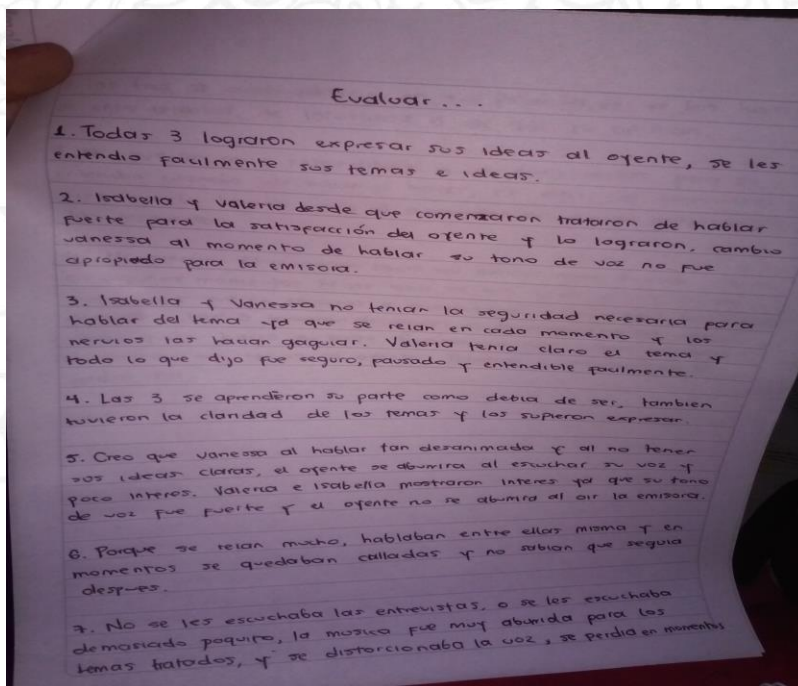 Evaluar...
1. Todas 3 lograron expresar sus ideas al oyente, se les
entendio facilmente sus temas e ideas.
2. Isabella y valeria desde que comenzaron trataron de hablar
fuerte para la satisfacción del oyente y lo lograron. cambio
vanessa al momento de hablar su tono de voz no fue
apropiado para la emisora.
3. Isabella y Vanessa no tenian la seguridad necesaria para
hablar del tema ya que se reian en cada momento y los
nervios las hacian gaguiar. Valeria tenia claro el tema y
todo lo que dijo fue seguro, pausado y entendible facilmente.
4. Las 3 se aprendieron su parte como debia de ser, tambien
tuvieron la claridad de los temas y los supieron expresar.
5. Creo que vanessa al hablar tan desanimada y al no tener
sus ideas claras, el oyente se aburrira al escuchar su voz y
poco interes. Valeria e isabella mostraron interes ya que su tono
de voz fue fuerte y el oyente no se aburrira al oir la emisora.
6. Porque se reian mucho, hablaban entre ellas misma y en
momentos se quedaban calladas y no sabian que seguia
despues.
7. No se les escuchaba las entrevistas, o se les escuchaba
demasiado poquito, la musica fue muy aburrida para los
temas tratados, y se distorcionaba la voz, se perdia en momentos